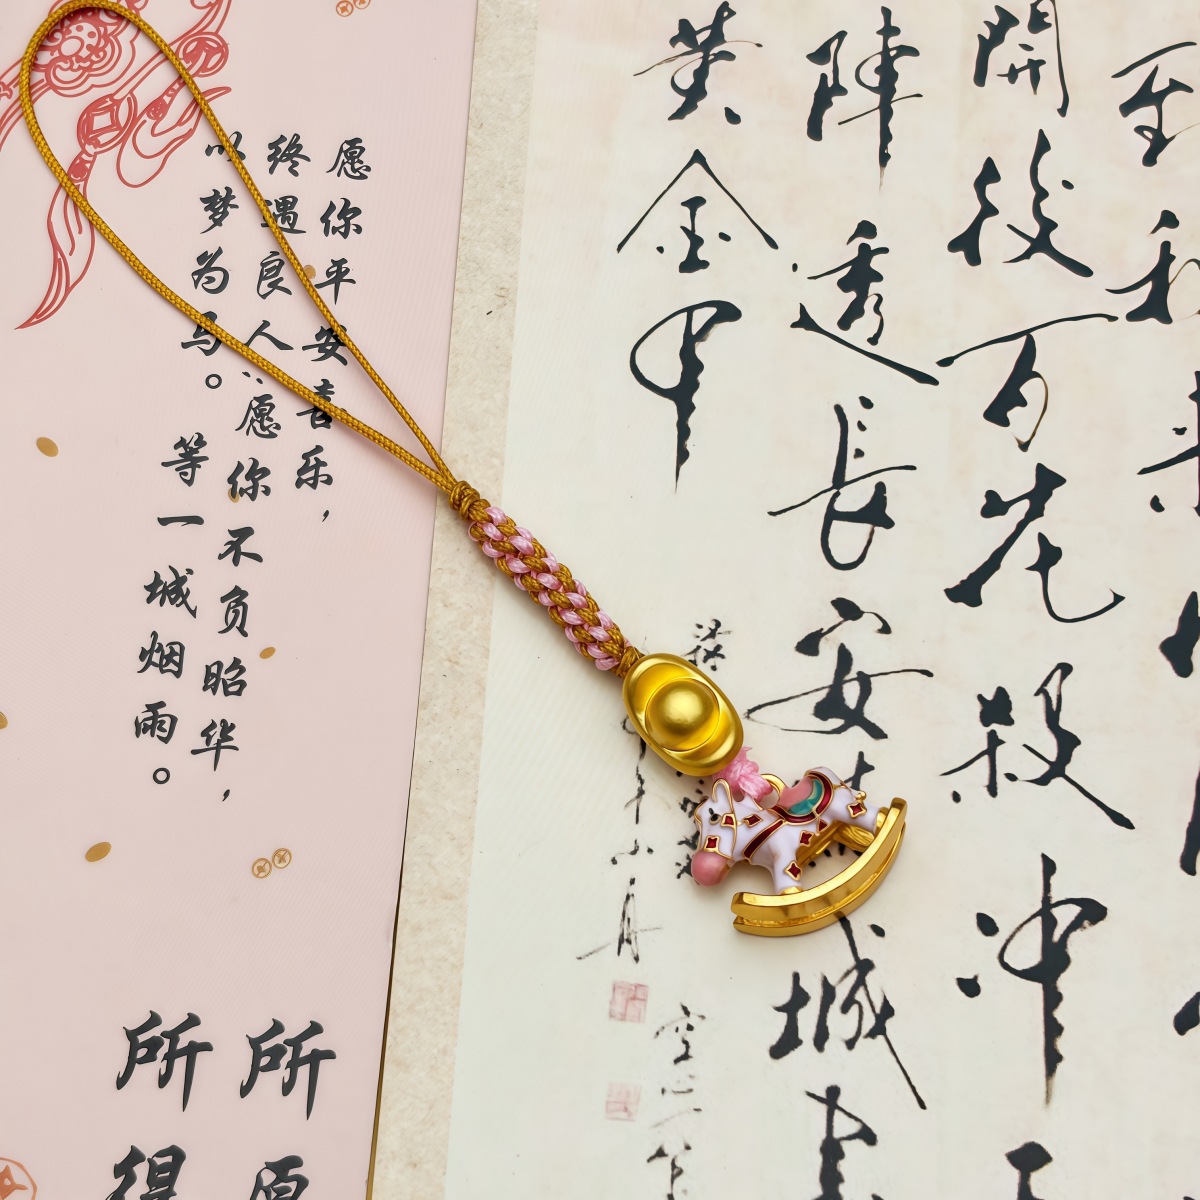 到秋来
開後百花殺冲天
陣透長安
城盡
黄金甲
愿你平安喜乐，
终遇良人；愿你不负昭华，
以梦为马。等一城烟雨。
所愿
所得